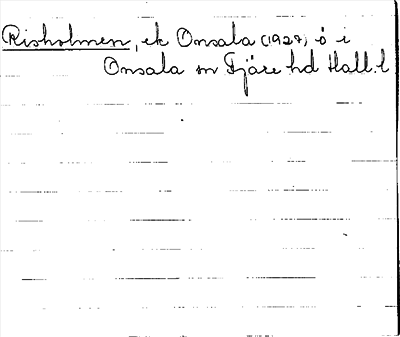 Risholmen, ek Onsala (1927) ö i
Onsala sn Fjäre hd Hall. l